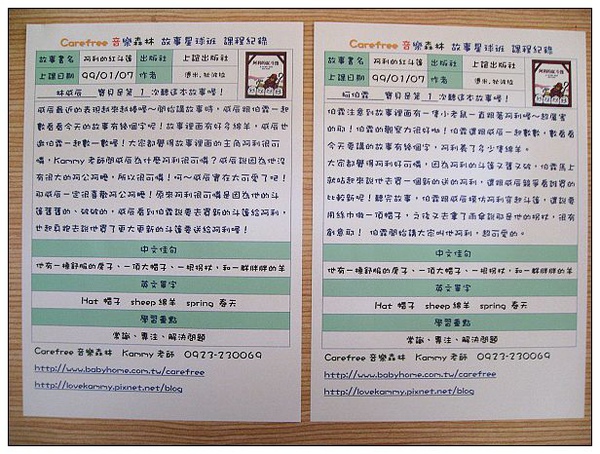 Carefree 音樂森林 故事星球班 課程紀錄
故事書名 阿利的紅斗篷 出版社 上誼出版社
上課日期 99/01/07 作者
林威辰 寶貝是第 1 次聽這本故事喔！
威辰最近的表現越來越棒喔～開始講故事時，威辰跟伯霖一起
數看看今天的故事有幾個字呢！故事裡面有好多綿羊，威辰也
邀伯霖一起數一數喔！大家都覺得故事裡面的主角阿利很可
憐，Kammy 老師問威辰為什麼阿利很可憐？威辰說因為他沒
有很大的阿公阿嬤，所以很可憐！呵～威辰實在太可愛了吧！
那威辰一定很喜歡阿公阿嬤！原來阿利很可憐是因為他的斗
篷舊舊的、破破的，威辰看到伯霖說要去買新的斗篷給阿利，
也起身跑去說他買了更大更新的斗篷要送給阿利喔！
中文佳句
他有一棟舒服的房子、一頂大帽子、一根拐杖，和一群胖胖的羊
英文單字
Hat 帽子 sheep 綿羊 spring 春天
學習重點
常識、專注、解決問題
Carefree 音樂森林 Kammy 老師 0923-230069
http://www.babyhome.com.tw/carefree
http://lovekammy.pixnet.net/blog
Carefree 音樂森林 故事星球班 課程紀錄
故事書名 阿利的紅斗篷 出版社 上誼出版社
上課日期 99/01/07 作者
柯伯霖 寶貝是第 1 次聽這本故事喔！
伯霖注意到故事裡面有一隻小老鼠一直跟著阿利喔～超厲害
的耶！伯霖的觀察力很好呦！伯霖還跟威辰一起數數，數看看
今天要講的故事有幾個字，阿利養了多少隻綿羊。
大家都覺得阿利好可憐，因為阿利的斗篷又舊又破，伯霖馬上
就站起來說他去買一個新的送的阿利，還跟威辰競爭看誰買的
比較新呢！聽完故事，伯霖跟威辰模仿阿利穿起斗篷，還說要
用絲巾做一頂帽子，之後又去拿了雨傘說那是他的拐杖，很有
創意耶！ 伯霖開始請大家叫他阿利，超可愛的。
中文佳句
他有一棟舒服的房子、一頂大帽子、一根拐杖，和一群胖胖的羊
英文單字
Hat 帽子 sheep 綿羊 spring 春天
學習重點
常識、專注、解決問題
Carefree 音樂森林 Kammy 老師 0923-230069
http://www.babyhome.com.tw/carefree
http://lovekammy.pixnet.net/blog